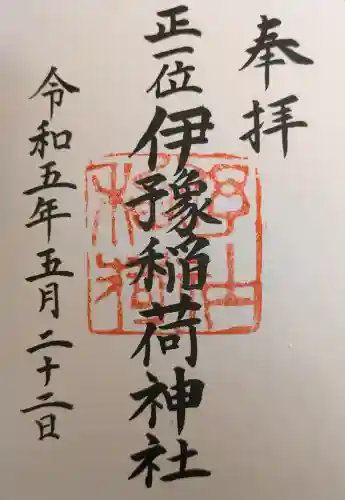 奉拝
正一位
伊豫稲荷神社
令和五年五月二十二日